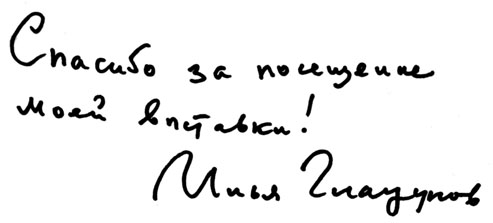 Спасибо за посещение
моей выставки!
Илья Глазунов